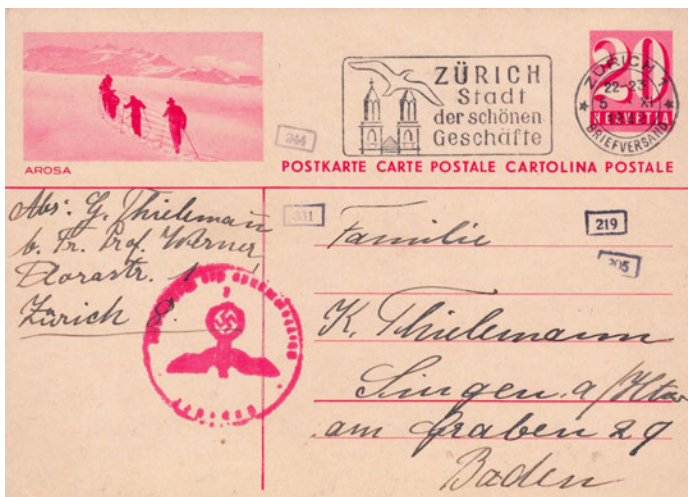 AROSA
ZÜRICH
Stadt
der schönen
Geschäfte
20
HELVETIA
ZÜRICH
22-23
5 XI
BRIEFVERSAND
POSTKARTE CARTE POSTALE CARTOLINA POSTALE
344
331
219
205
Abs: G. Thielemann
b. Fr. Prof. Werner
Florastr. 1
Zürich 8.
Familie
K. Thielemann
Singen a/Htw
am Graben 29
Baden